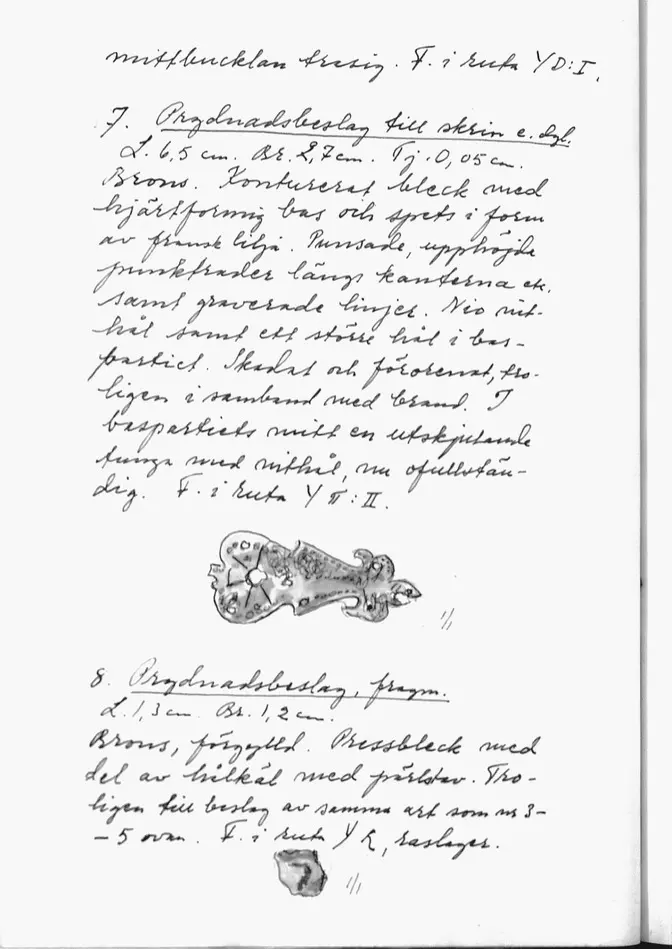 mittbucklan trasig. F. i ruta Y D:I.
7. Prydnadsbeslag till skrin e. dyl.
L. 6,5 cm. Br. 2,7 cm. Tj. 0,05 cm.
Brons. Konturerat bleck med
hjärtformig bas och spets i form
av fransk lilja. Punsade, upphöjda
punktrader längs kanterna etc.
samt graverade linjer. Nio nit-
hål samt ett större hål i bas-
partiet. Skadat och förorenat, tro-
ligen i samband med brand. I
baspartiets mitt en utskjutande
tunga med nithål, nu ofullstän-
dig. F. i ruta Y π:II.
1/1
8. Prydnadsbeslag, fragm.
L. 1,3 cm. Br. 1,2 cm.
Brons, förgylld. Pressbleck med
del av hålkäl med pärlstav. Tro-
ligen till beslag av samma art som nr 3-
-5 ovan. F. i ruta Y raslager.
1/1